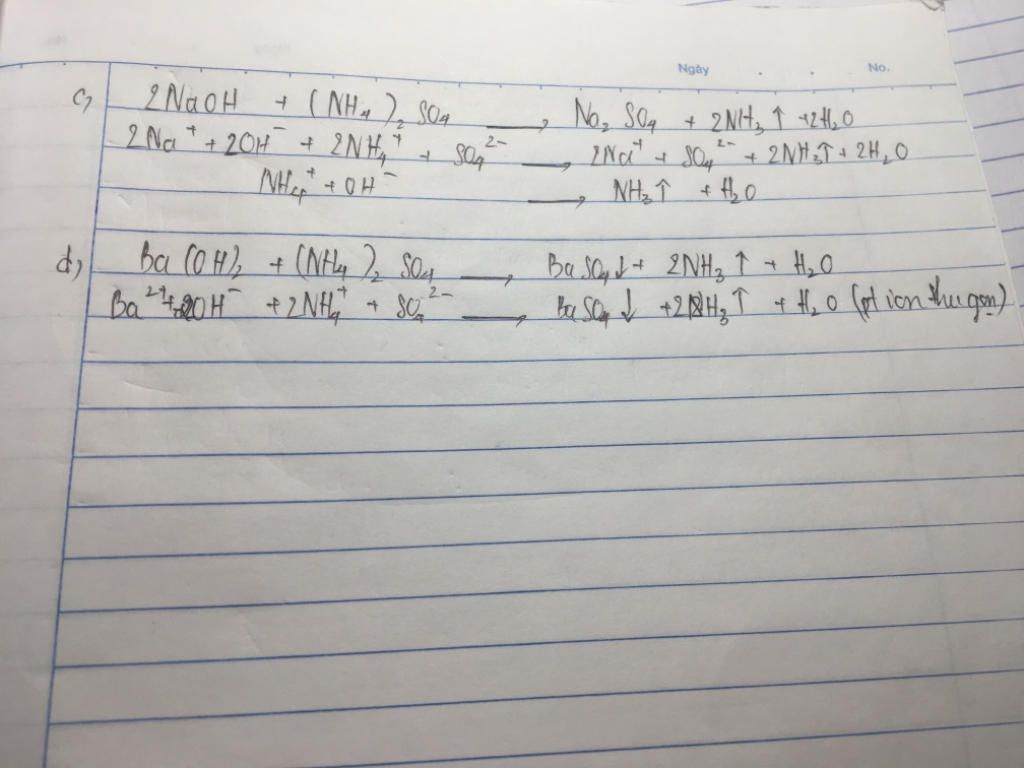 Ngày . . No.
c, 2NaOH + (NH₄)₂SO₄ ⟶ Na₂SO₄ + 2NH₃↑ + 2H₂O
2Na⁺ + 2OH⁻ + 2NH₄⁺ + SO₄²⁻ ⟶ 2Na⁺ + SO₄²⁻ + 2NH₃↑ + 2H₂O
NH₄⁺ + OH⁻ ⟶ NH₃↑ + H₂O
d, Ba(OH)₂ + (NH₄)₂SO₄ ⟶ BaSO₄↓ + 2NH₃↑ + H₂O
Ba²⁺ + 2OH⁻ + 2NH₄⁺ + SO₄²⁻ ⟶ BaSO₄↓ + 2NH₃↑ + H₂O (pt ion thu gọn)